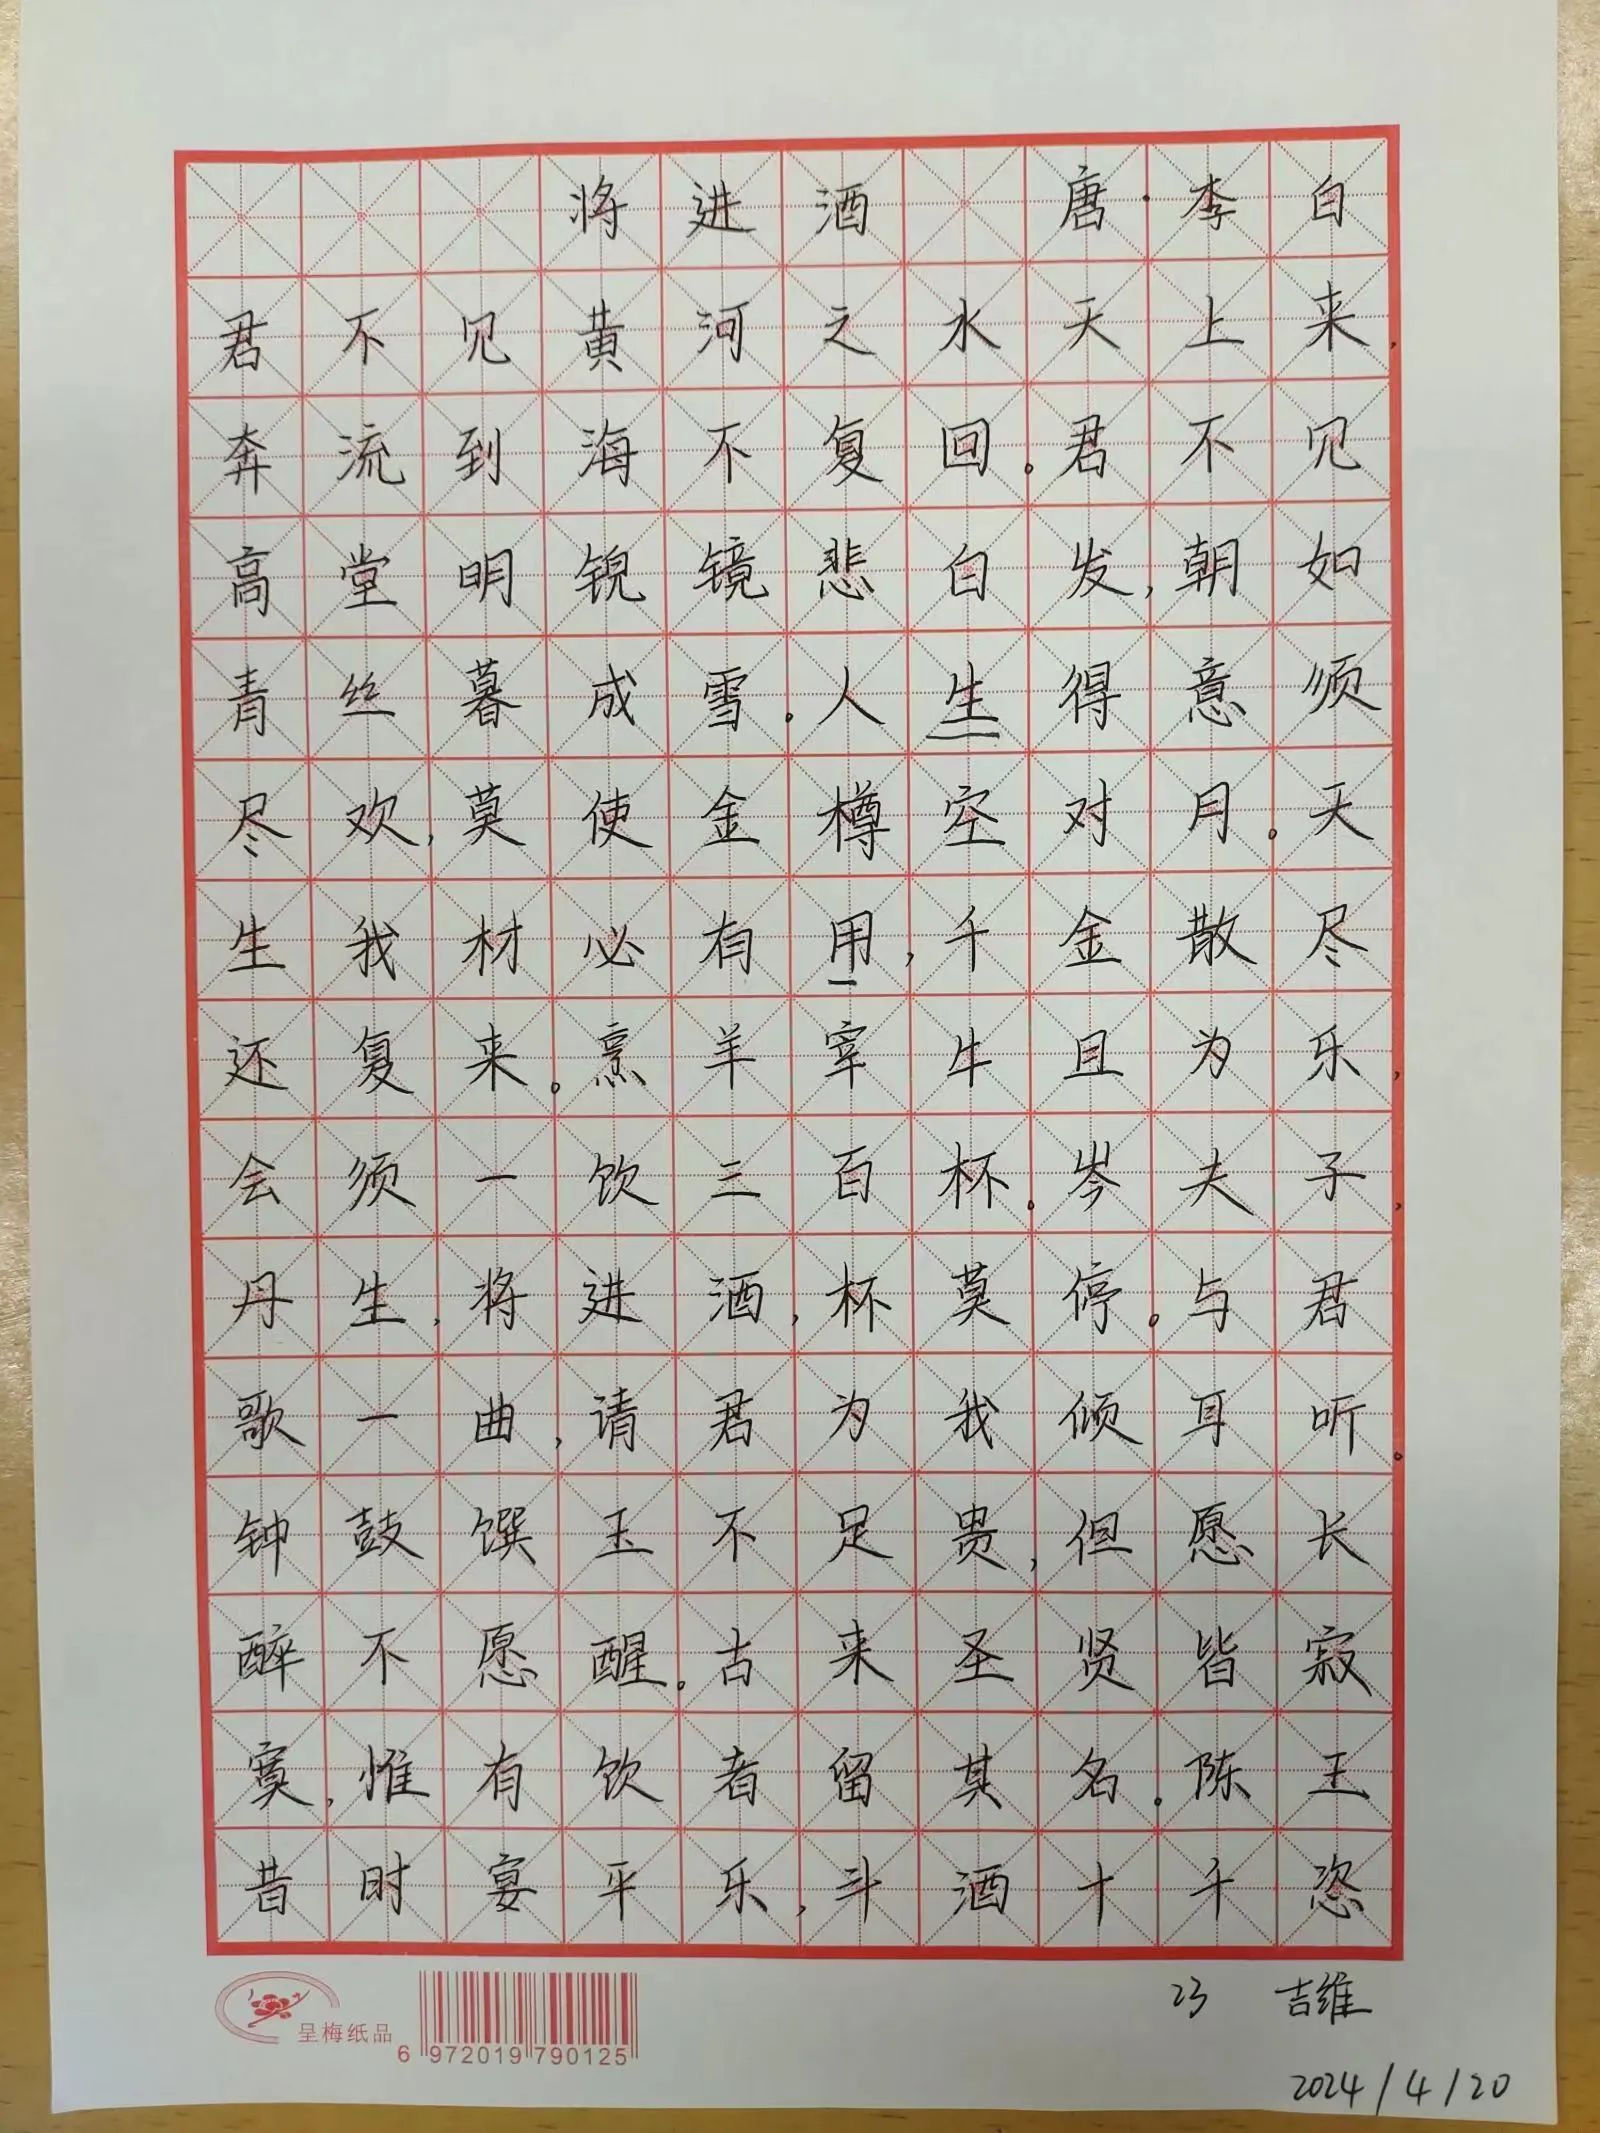 将进酒 唐·李白
君不见黄河之水天上来,
奔流到海不复回。君不见
高堂明锐镜悲白发,朝如
青丝暮成雪。人生得意须
尽欢,莫使金樽空对月。天
生我材必有用,千金散尽
还复来。烹羊宰牛且为乐,
会须一饮三百杯。岑夫子,
丹生,将进酒,杯莫停。与君
歌一曲,请君为我倾耳听。
钟鼓馔玉不足贵,但愿长
醉不愿醒。古来圣贤皆寂
寞,惟有饮者留其名。陈王
昔时宴平乐,斗酒十千恣
呈梅纸品
6 972019 790125
23 吉维
2024/4/20